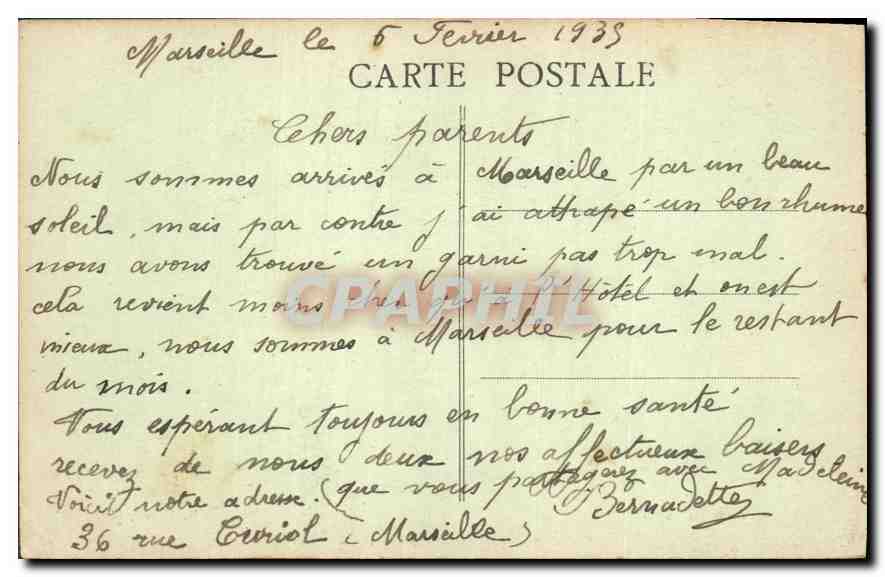 Marseille le 6 Fevrier 1935
CARTE POSTALE
Chers parents
Nous sommes arrivés à Marseille par un beau
soleil, mais par contre j'ai attrapé un bon rhume
nous avons trouvé un garni pas trop mal.
cela revient moins cher qu'à l'Hôtel et on est
CPAPHIL
mieux, nous sommes à Marseille pour le restant
du mois.
Vous espérant toujours en bonne santé
recevez de nous deux nos affectueux baisers
(que vous partagerez avec Madeleine
Voici notre adresse. Bernadette
36 rue Curiol (Marseille)